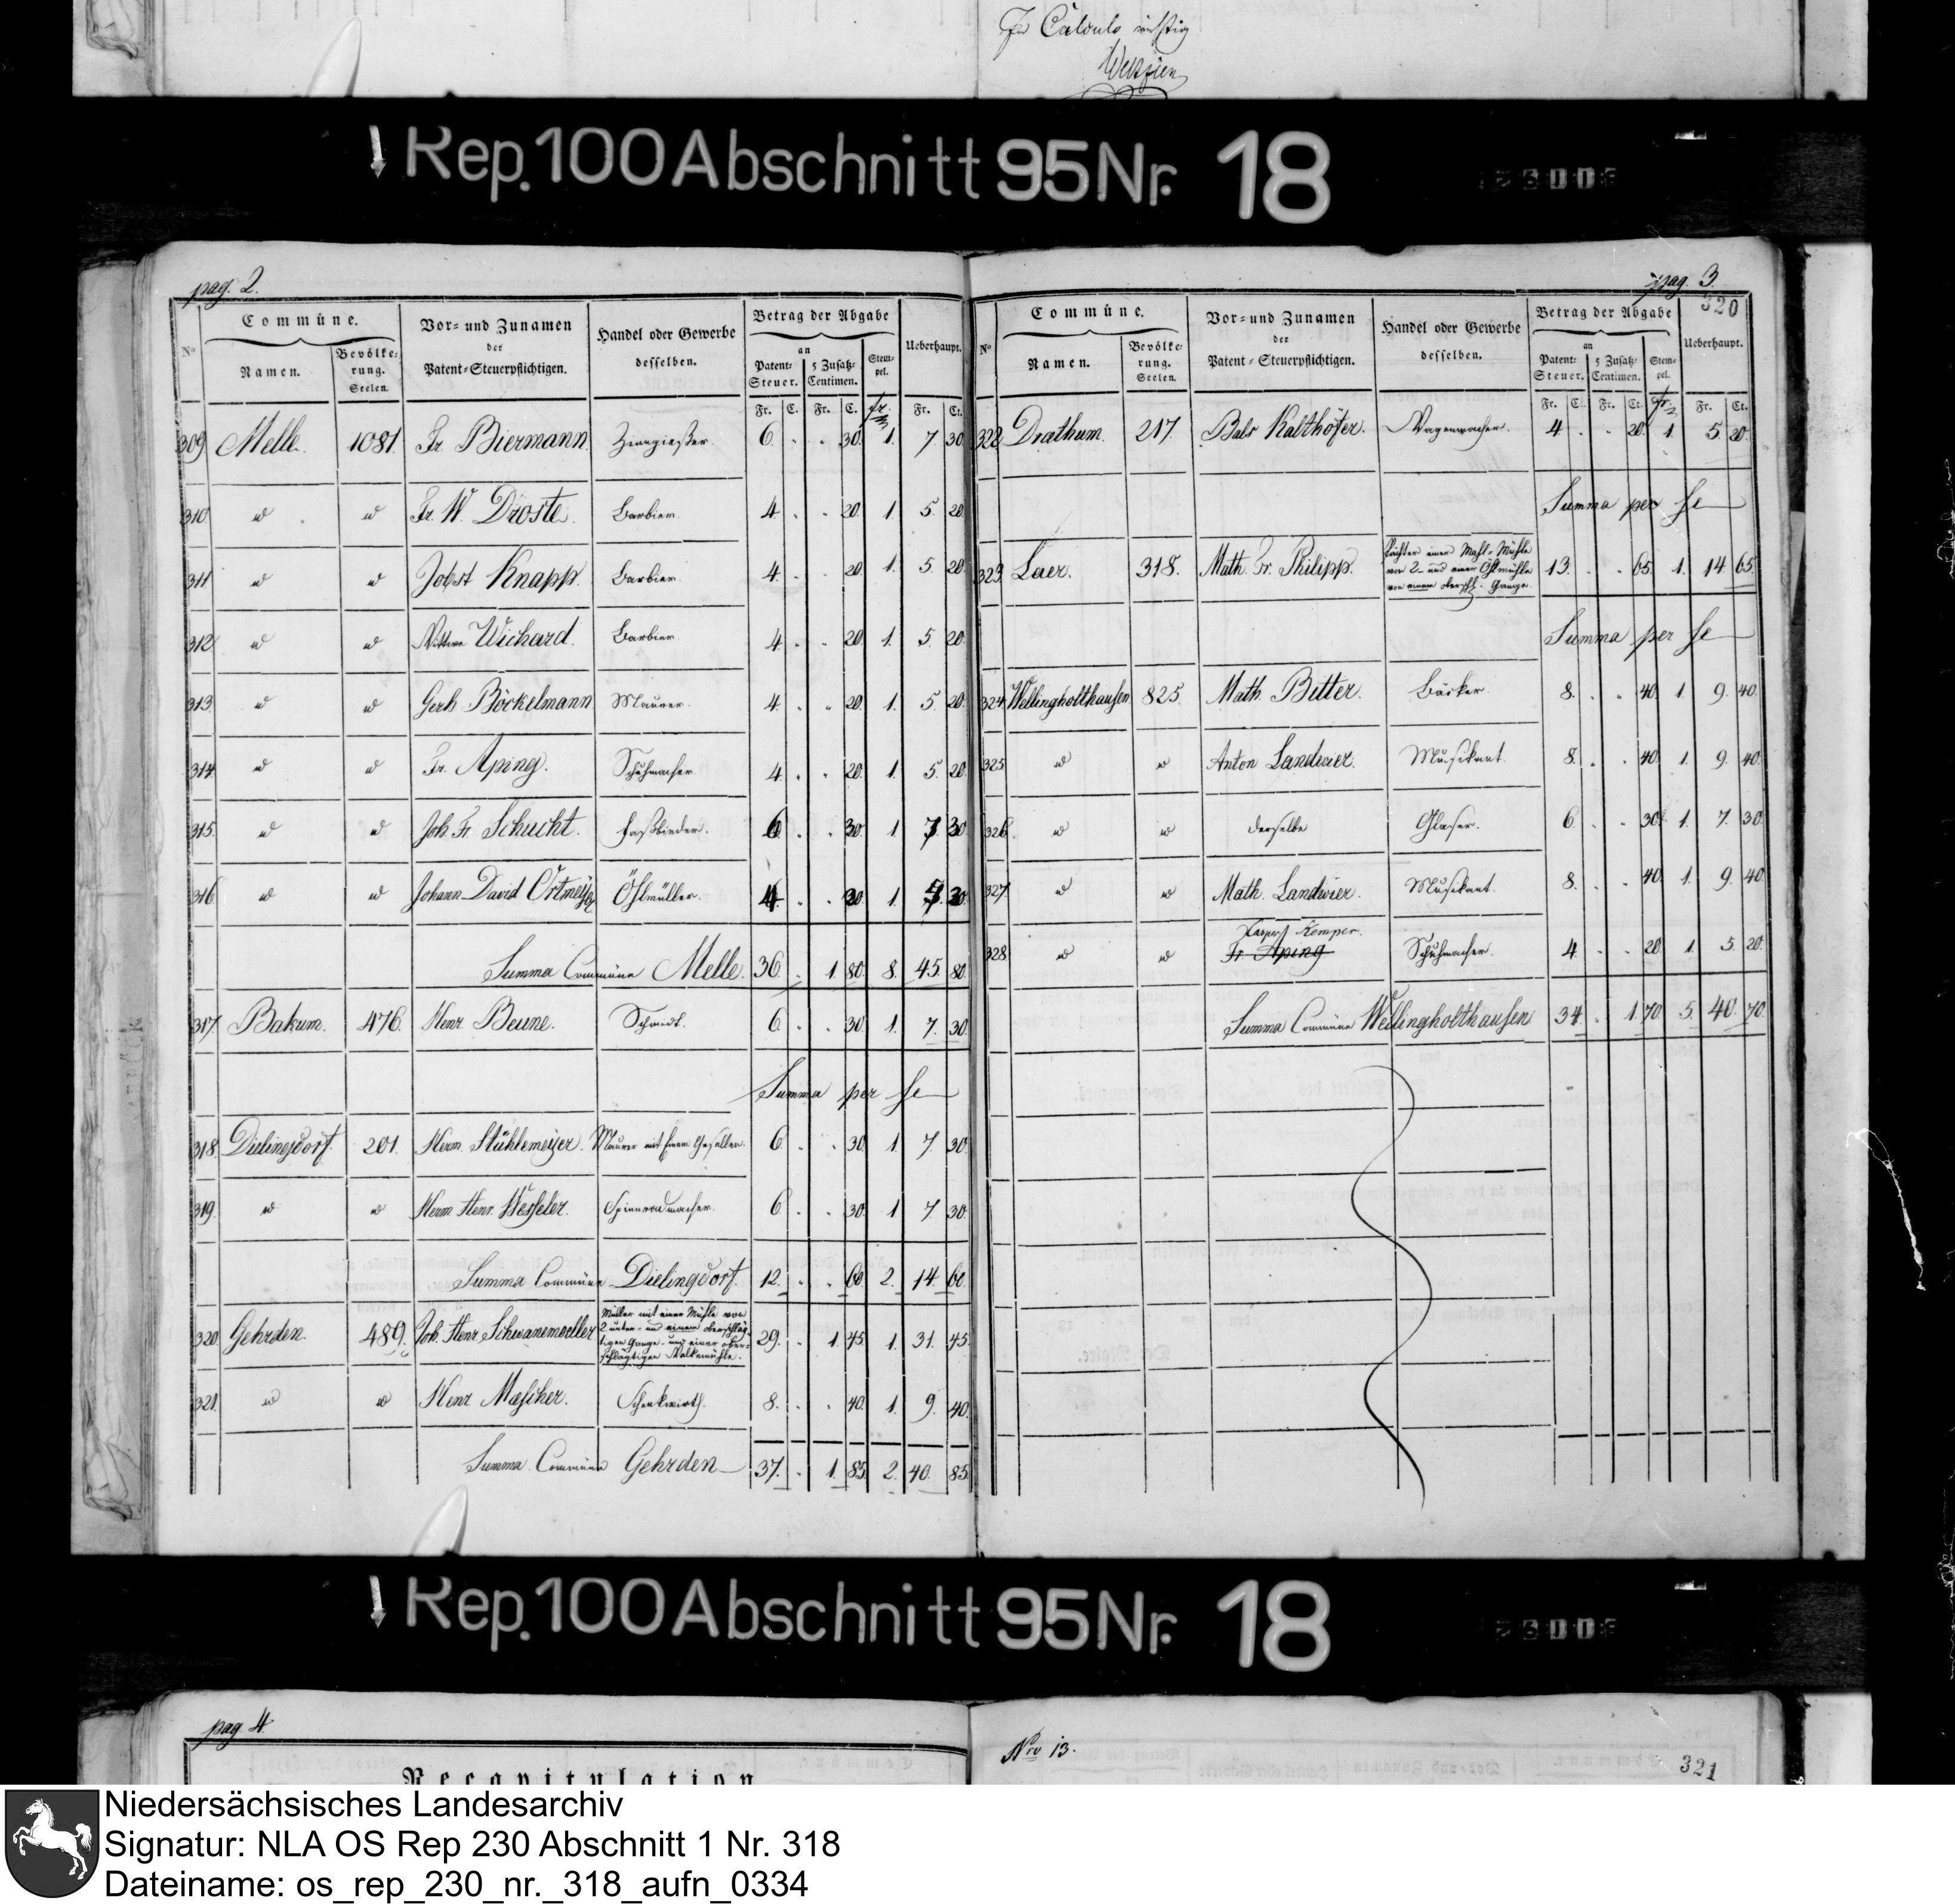 In Calculo richtig
Rep. 100 Abschnitt 95 Nr. 18
pag. 2.
No
Commüne.
Namen.
Bevölke-
rung.
Seelen.
Vor- und Zunamen
der
Patent-Steuerpflichtigen.
Handel oder Gewerbe
desselben.
Betrag der Abgabe
an
Patent-
Steuer.
5 Zusatz-
Centimen.
Stem-
pel.
Ueberhaupt.
Fr. C. Fr. C. fr. Fr. Ct.
309 Melle. 1081. Fr Biermann Zinngießer 6. 30. 1. 7 30
310 " " Fr. W. Droste. Barbier. 4. 20. 1 5. 20
311 " " Jobst Knapp. Barbier. 4. 20 1. 5. 20
312 " " Wittwe Wichard. Barbier. 4. 20 1. 5 20
313 " " Gerh Böckelmann Maurer. 4. 20. 1. 5. 20
314 " " Fr. Aping. Schuhmacher 4. 20. 1. 5. 20
315. " " Joh. Fr. Schucht. Faßbinder. 6. 30. 1 7. 30
316 " " Johann David Ortmeyer Öhlmüller. 4. 1. 5.
Summa Commüne Melle. 36. 1. 80. 8. 45. 80
317 Bakum. 476. Henr Beune. Schmidt. 6. 30 1. 7. 30
Summa per se
318. Dielingdorf. 201. Herm. Stühlemeijer. Maurer mit Einem Gesellen. 6. 30. 1. 7 30.
319. " " Herm. Henr. Wesseler. Spinnradmacher. 6. 30. 1 7. 30.
Summa Commüne Dielingdorf. 12. 60 2. 14. 60.
320 Gehrden. 489. Joh. Henr. Schwanemoeller Müller mit einer Mühle von
2 unter- und einem oberschläg-
tigen Gange - und einer ober-
schlägtigen Walkemühle. 29. 1 45. 1. 31. 45.
321. " " Henr Maescher. Schenkwirth. 8. 40. 1. 9. 40.
Summa Commüne Gehrden 37. 1. 85. 2. 40. 85.
pag. 3.
320
No
Commüne.
Namen.
Bevölke-
rung.
Seelen.
Vor- und Zunamen
der
Patent-Steuerpflichtigen.
Handel oder Gewerbe
desselben.
Betrag der Abgabe
an
Patent-
Steuer.
5 Zusatz-
Centimen.
Stem-
pel.
Ueberhaupt.
Fr. C. Fr. Ct. fr. Fr. Ct.
322 Drathum. 217. Balz Kalthöfer. Wagenmacher. 4 20. 1. 5. 20.
Summa per se
323. Laer. 318. Math. Fr. Philipp. Pächter einer Mahl-Mühle
von 2- und einer Öhlmühle
von einem oberschl. Gange. 13. 65. 1. 14 65.
Summa per se
324 Wellingholthausen 825. Math. Bitter. Bäcker. 8. 40. 1 9. 40.
325 " " Anton Landwier. Musikant. 8. 40. 1. 9. 40.
326. " " derselbe Glaser. 6. 30. 1. 7. 30
327. " " Math. Landwier. Musikant. 8. 40 1. 9. 40
Kasper Kemper.
328 " " Fr. Aping Schuhmacher. 4. 20 1 5 20.
Summa Commüne Wellingholthausen 34. 1 70. 5. 40. 70
Rep. 100 Abschnitt 95 Nr. 18
pag 4.
Recapitulation
Nro 13.
321
Niedersächsisches Landesarchiv
Signatur: NLA OS Rep 230 Abschnitt 1 Nr. 318
Dateiname: os_rep_230_nr._318_aufn_0334